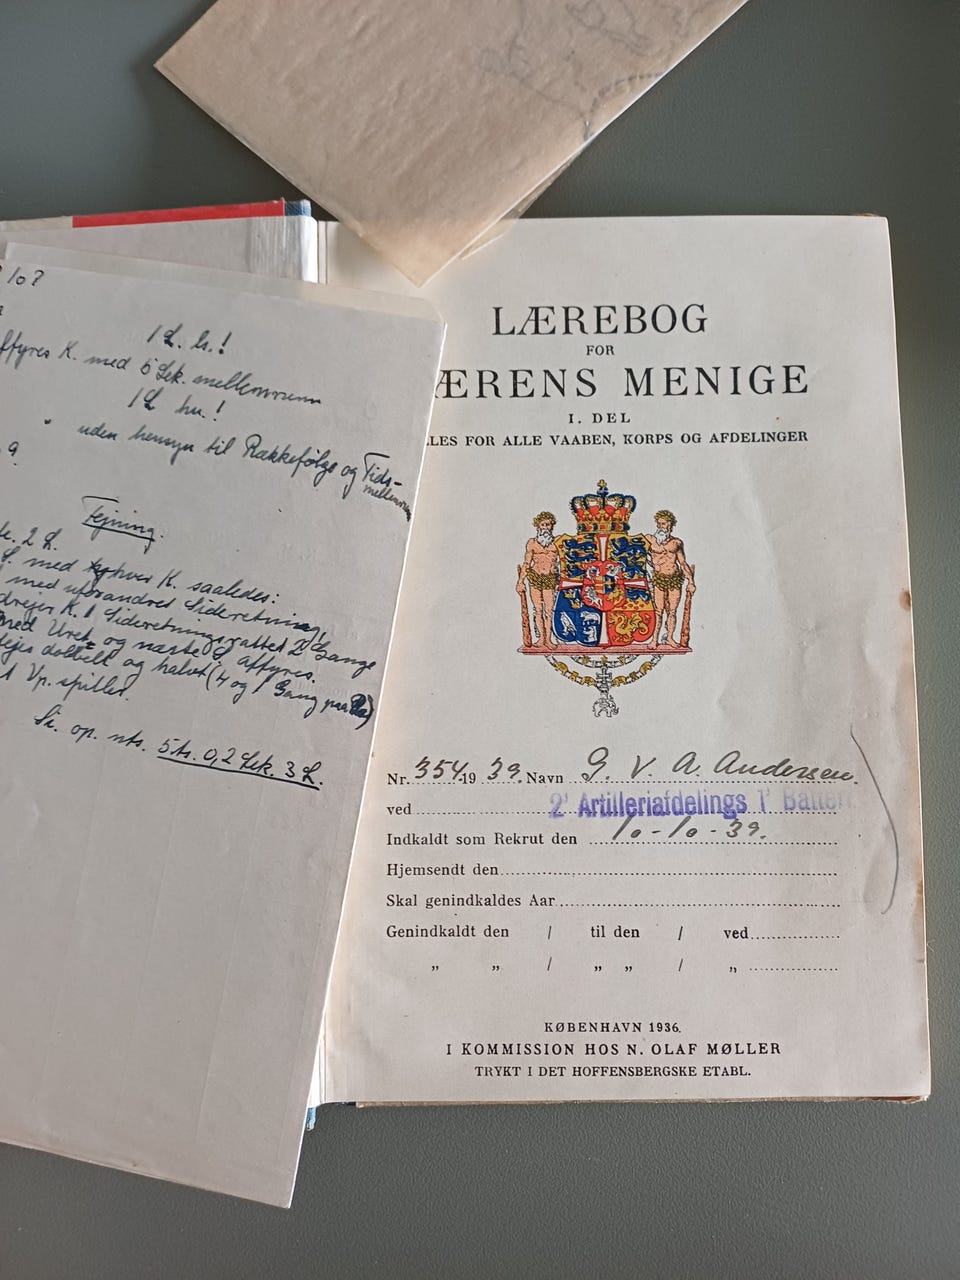 10?
1 L. h.!
affyres K. med 5 Sek. mellemrum
1 L hu.!
" uden hensyn til Rækkefølge og Tids-
mellemrum
Fejning.
2 L.
L. med hver K. saaledes:
med uforandret Sideretning,
drejer K. 1 Sideretningsrattet 2 Gange
med Uret, og næste L affyres.
dobbelt og halvt (4 og 1 Gang paa
Vp. spiller.
Si. op. nts. 5 ts. 0,2 Sek. 3 L.
LÆREBOG
FOR
ÆRENS MENIGE
I. DEL
LLES FOR ALLE VAABEN, KORPS OG AFDELINGER
Nr. 354 19 39. Navn G. V. A. Andersen.
ved 2' Artilleriafdelings 1' Batteri
Indkaldt som Rekrut den 10-10-39.
Hjemsendt den
Skal genindkaldes Aar
Genindkaldt den / til den / ved
" " / " " / "
KØBENHAVN 1936.
I KOMMISSION HOS N. OLAF MØLLER
TRYKT I DET HOFFENSBERGSKE ETABL.